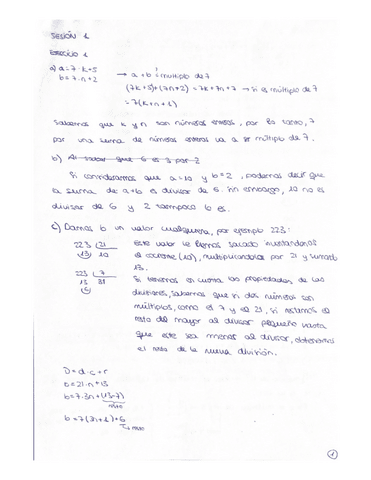 SESIÓN 1
EJERCICIO 1
a) a = 7·k+5
b = 7·n+2 → a + b = múltiplo de 7
(7k+5)+(7n+2) = 7k+7n+7 → Si es múltiplo de 7
= 7(k+n+1)
Sabemos que k y n son números enteros, por lo tanto, 7
por una suma de números enteros va a ser múltiplo de 7.
b) Al saber que 6 es 3 por 2
Si consideramos que a=10 y b=2, podemos decir que
la suma de a+b es divisor de 6. Sin embargo, 10 no es
divisor de 6 y 2 tampoco lo es.
c) Damos b un valor cualquiera, por ejemplo 223:
223 21
(13) 10
223 7
13 31
(6)
Este valor le hemos sacado inventándonos
el cociente (10), multiplicándolos por 21 y sumado
13.
Si tenemos en cuenta las propiedades de las
divisiones, sabemos que si dos números son
múltiplos, como el 7 y el 21, si restamos el
resto del mayor al divisor pequeño hasta
que este sea menor al divisor, obtenemos
el resto de la nueva división.
D = d·c+r
b = 21·n+13
b = 7·3n+(13-7)
resto
b = 7(3n+1)+6
resto
1